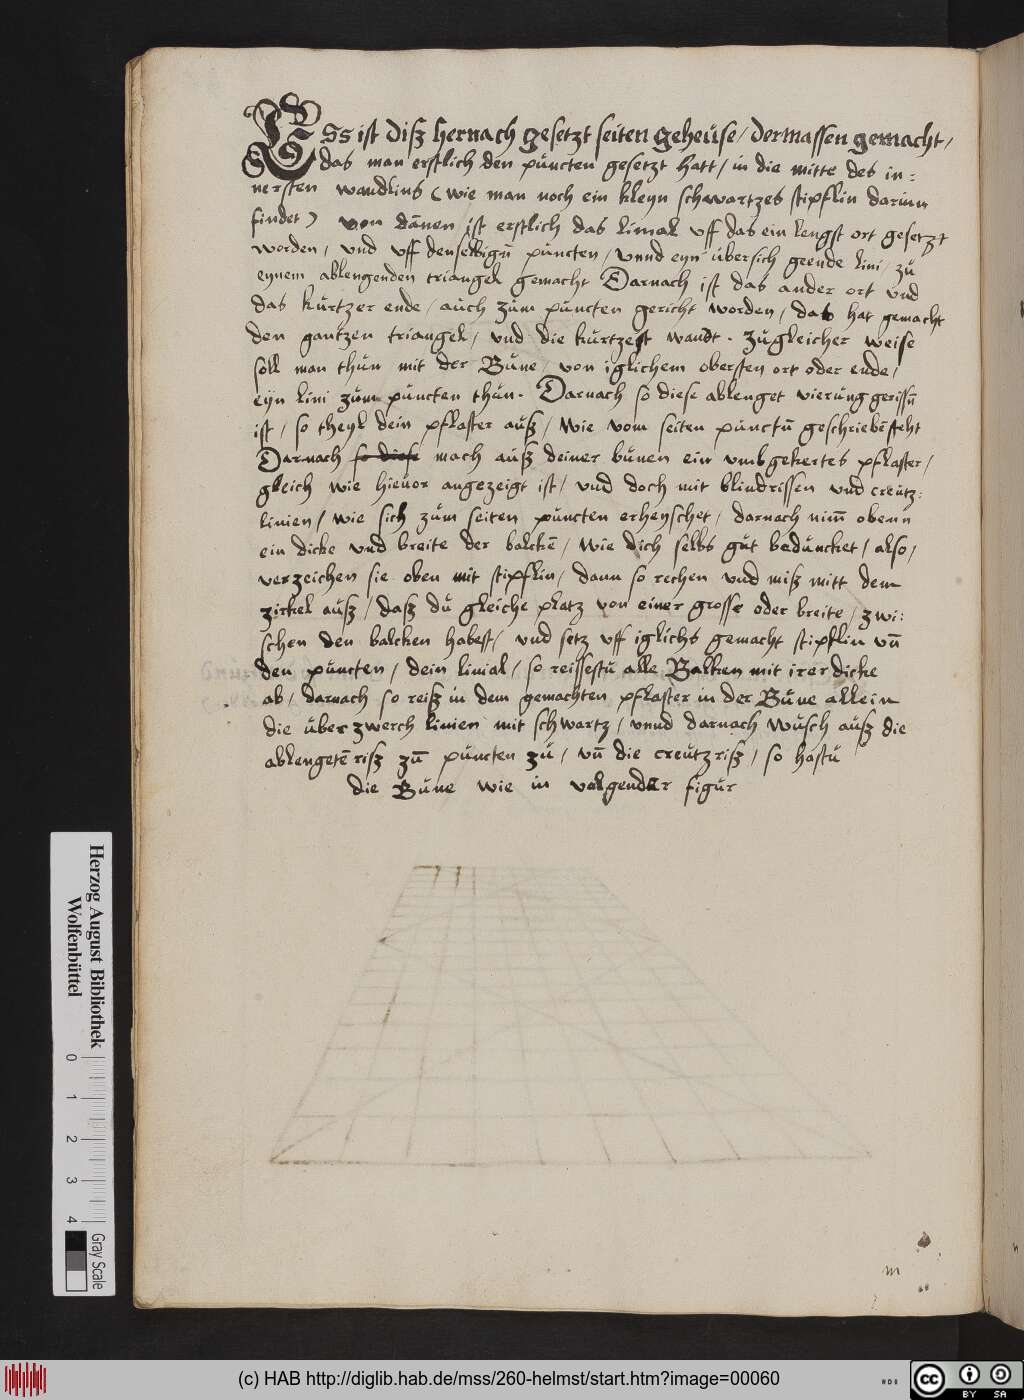 ESs ist diß hernach gesetzt seiten geheüse / dermassen gemacht /
das man erstlich den püncten gesetzt hatt / in die mitte des in=
nersten wandlins (wie man noch ein kleyn schwartzes stipflin darinn
findet) von dānen ist erstlich das limal uff das ein lengst ort gesetzt
worden / und uff denselbigū püncten / unnd eyn übersich geende lini / zü
eynem ablengenden triangel gemacht Darnach ist das ander ort und
das kürtzer ende / auch züm püncten gericht worden / das hat gemacht
den gantzen triangel / und die kürtzest wandt . zügleicher weise
soll man thün mit der Büne / von iglichem obersten ort oder ende /
eyn lini züm püncten thün . Darnach so diese ablenget vierüng gerissū
ist / so theyl dein pflaster auß / wie vom seiten pünctū geschriebē steht
Darnach so diese mach auß deiner bünen ein umbgekertes pflaster /
gleich wie hieuor angezeigt ist / und doch mit blindrissen und creütz=
linien / wie sich züm seiten püncten erheyschet / darnach nim̄ obenn
ein dicke und breite der balckē / wie dich selbs güt bedüncket / also /
verzeichen sie oben mit stipflin / dann so rechen und miß mitt dem
zirkel auß / daß dü gleiche platz von einer grosse oder breite / zwi=
schen den balcken habest / und setz uff iglichs gemacht stipflin un̄
den püncten / dein linial / so reissestü alle Balken mit irer dicke
ab / darnach so reiß in dem gemachten pflaster in der Büne allein
die überzwerch linien mit schwartz / unnd darnach wüsch auß die
ablengetē riß zū püncten zü / un̄ die creützriß / so hastü
die Büne wie in volgender figür
m
Herzog August Bibliothek
Wolfenbüttel
0 1 2 3 4
Gray Scale
(c) HAB http://diglib.hab.de/mss/260-helmst/start.htm?image=00060
cc BY SA